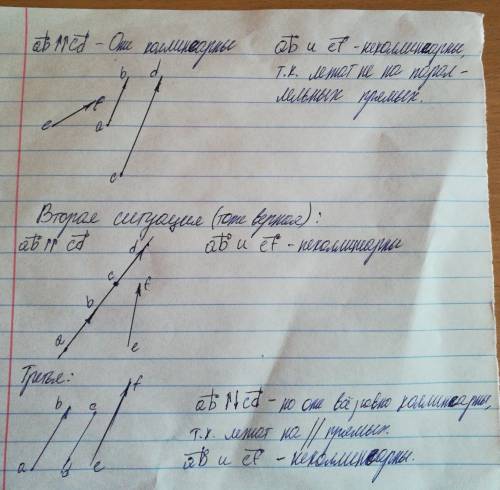 ab↑↑cd - Они коллинеарны
ab и ef - неколлинеарны,
т.к. лежат не на парал-
лельных прямых.
b d
f
e a
c
Вторая ситуация (тоже верная):
ab↑↑cd
ab и ef - неколлинеарны
d
c
f
b
a
e
Третья:
f
b c
a e
ab↑↓cd - но они всё равно коллинеарны,
т.к. лежат на || прямых.
ab и ef - неколлинеарны.